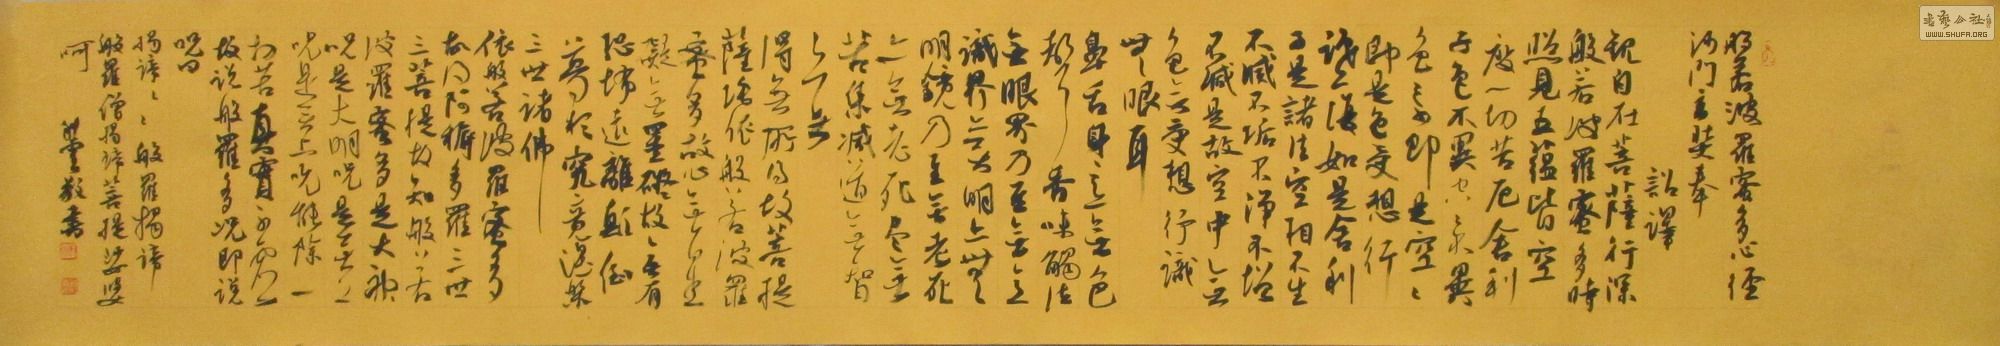 般若波羅蜜多心經
沙門玄奘奉
詔譯
觀自在菩薩行深
般若波羅蜜多時
照見五蘊皆空
度一切苦厄舍利
子色不異空空不異
色色即是空空
即是色受想行
識亦復如是舍利
子是諸法空相不生
不滅不垢不淨不增
不減是故空中無
色無受想行識
無眼耳
鼻舌身意無色
聲香味觸法
無眼界乃至無意
識界無無明亦無無
明盡乃至無老死
亦無老死盡無
苦集滅道無智
亦無
得無所得故菩提
薩埵依般若波羅
蜜多故心無罣
礙無罣礙故無有
恐怖遠離顛倒
夢想究竟涅槃
三世諸佛
依般若波羅蜜多
故得阿耨多羅三藐
三菩提故知般若
波羅蜜多是大神
咒是大明咒是無上
咒是無上咒能除一
切苦真實不虛
故說般羅多咒即說
咒曰
揭諦揭諦般羅揭諦
般羅僧揭諦菩提娑婆
呵
敬書
書藝公社
WWW.SHUFA.ORG